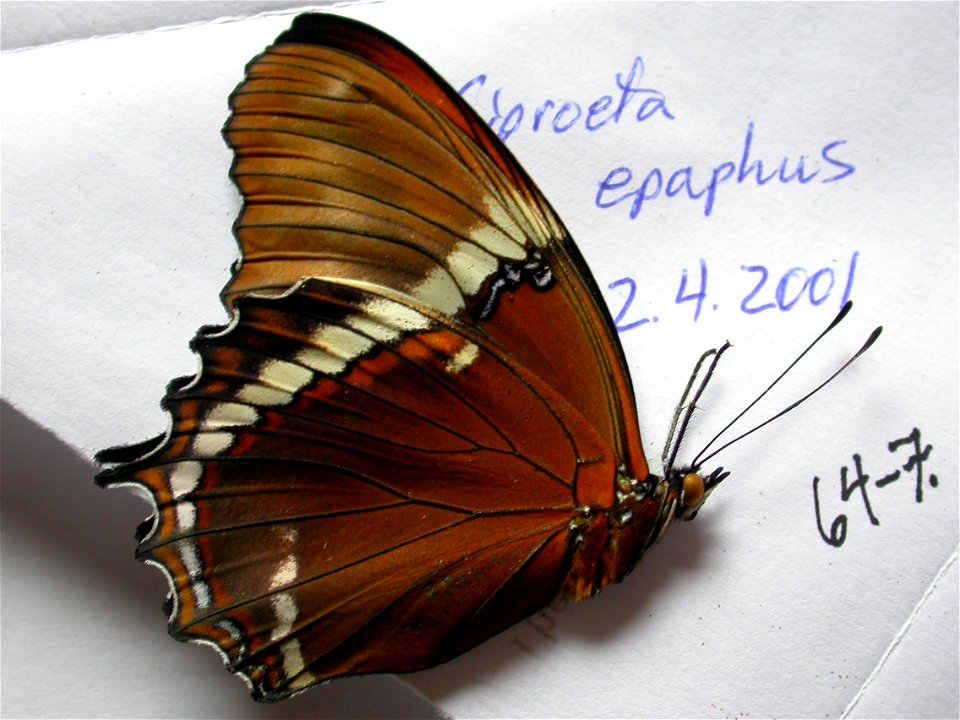 Siproeta
epaphus
2.4.2001
64-7.